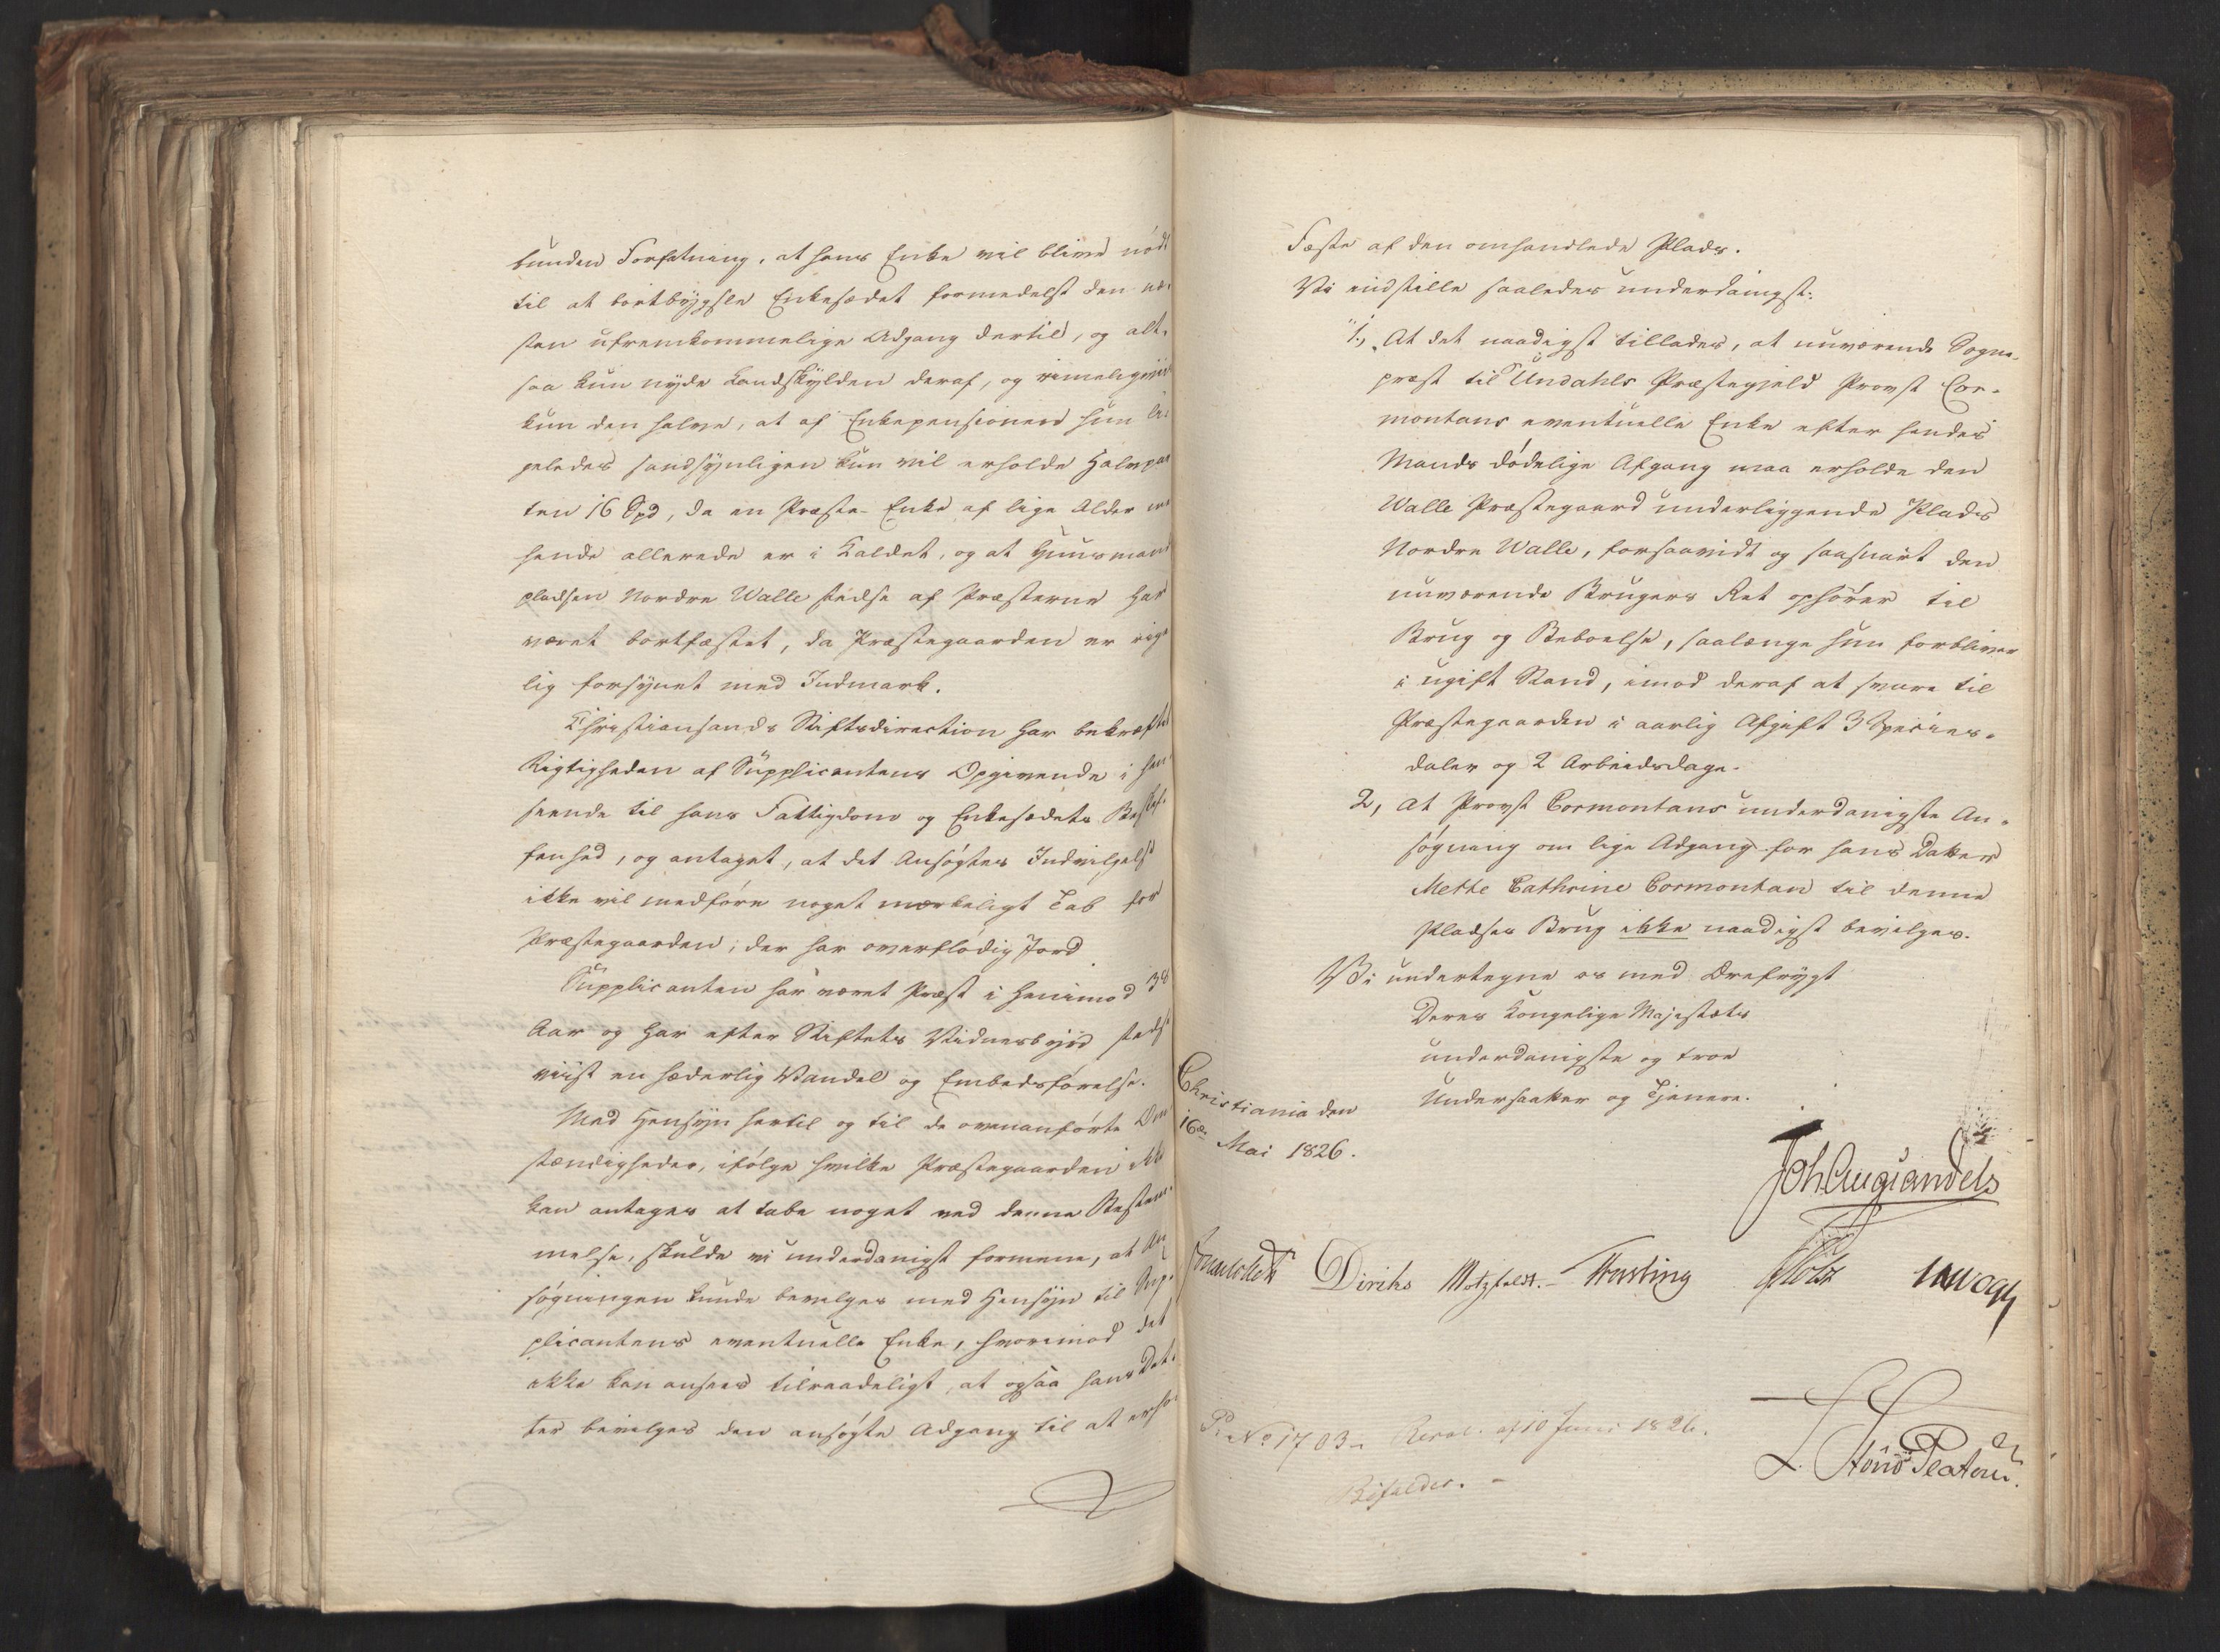 bunden Forfatning, at hans Enke vil blive nødt
til at bortbygsle Enkesædet formedelst den næ-
sten ufremkommelige Adgang dertil, og alt-
saa kun nyde Landskylden deraf, og rimeligviis
kun den halve, at af Enkepensionen hun li-
geledes sandsynligen kun vil erholde Halvpar
ten 16 Spd, da en Præste-Enke af lige Alder med
hende allerede er i Kaldet, og at Huusmands
pladsen Nordre Walle stedse af Præsterne har
været bortfæstet, da Præstegaarden er rige
lig forsynet med Indmark.
Christiansands Stiftsdirection har bekræftet
Rigtigheden af Supplicantens Opgivende i hen
seende til hans Fattigdom og Enkesædets Beskaf-
fenhed, og antaget, at det Ansøgtes Indvilgelse
ikke vil medføre noget mærkeligt Tab for
Præstegaarden, der har overflødig Jord.
Supplicanten har været Præst i henimod 38
Aar og har efter Stiftets Vidnesbyrd stedse
viist en hæderlig Vandel og Embedsførelse.
Med Hensyn hertil og til de ovenanførte Om
stændigheder, ifølge hvilke Præstegaarden ikke
kan antages at tabe noget ved denne Bestem-
melse, skulde vi underdanigst formene, at An
søgningen kunde bevilges med Hensyn til Sup-
plicantens eventuelle Enke, hvorimod det
ikke kan ansees tilraadeligt, at ogsaa hans Dat-
ter bevilges den ansøgte Adgang til at erho-
Fæste af den omhandlede Plads.
Vi indstille saaledes underdanigst:
"1., At det naadigst tillades, at nuværende Sogne-
præst til Undahls Præstegjeld Provst Cor-
montans eventuelle Enke efter hendes
Mands dødelige Afgang maa erholde den
Walle Præstegaard underliggende Plads
Nordre Walle, forsaavidt og saasnart den
nuværende Brugers Ret ophører til
Brug og Beboelse, saalænge hun forbliver
i ugift Stand, imod deraf at svare til
Præstegaarden i aarlig Afgift 3 Species-
daler og 2 Arbeidsdage.
2, At Provst Cormontans underdanigste An-
søgning om lige Adgang for hans Datter
Mette Cathrine Cormontan til denne
Pladses Brug ikke naadigst bevilges.
Vi undertegne os med Ærefrygt
Deres Kongelige Majestæts
underdanigste og troe
Undersaatter og Tjenere.
Christiania den
16de Mai 1826.
Joh Aug Sandels
Sommerhielm Diriks Motzfeldt. Treschow Holst
L. Stoud Platou
No 1703. Resol. af 10 Juni 1826.
Bifaldes.